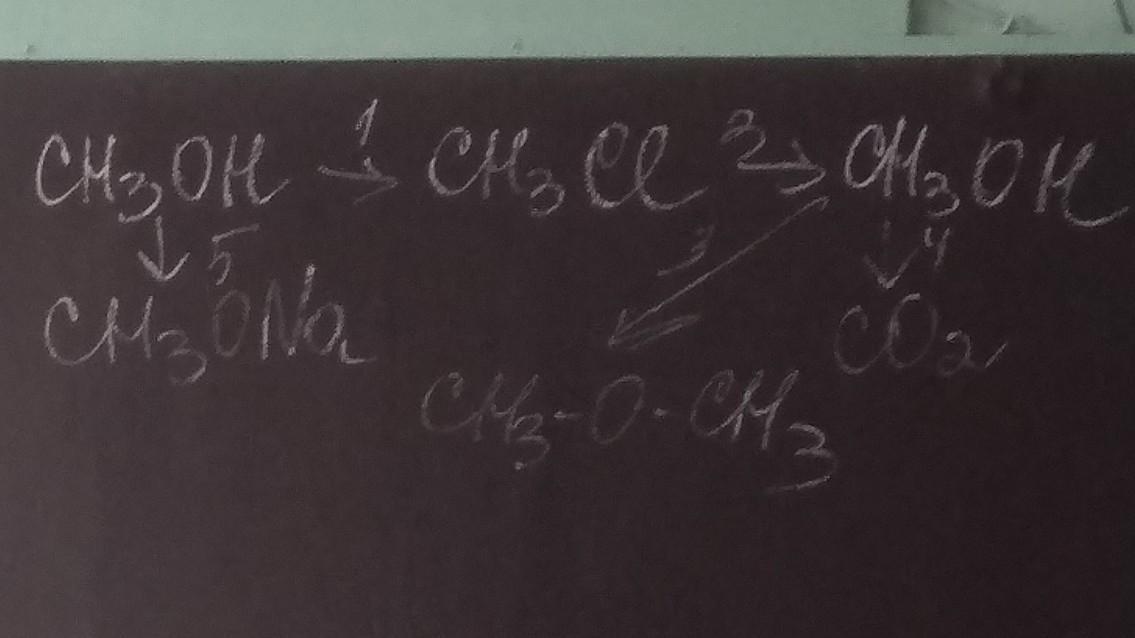 CH3OH 1→ CH3Cl 2→ CH3OH
↓ 5 3 ↓ 4
CH3ONa CO2
CH3-O-CH3